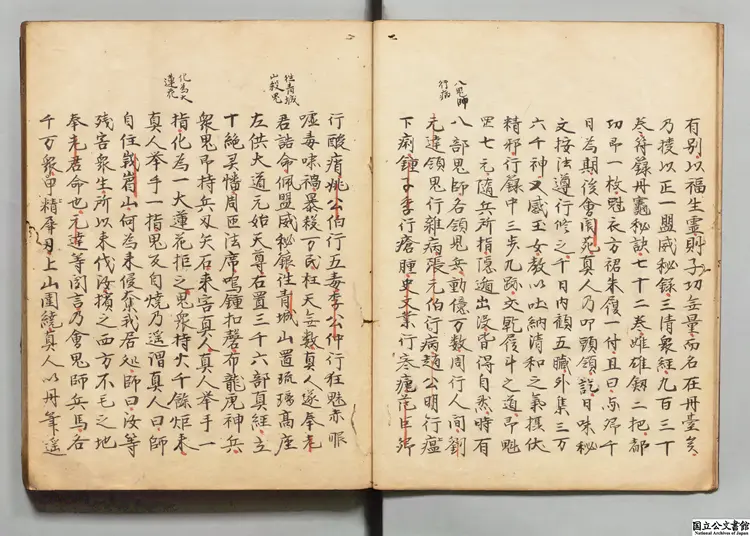 八鬼帥
行病
有別、以福生霊則子功無量而名在丹臺矣
乃授以正一盟威秘錄、三清衆経九百三十
巻符籙丹竈秘訣七十二巻雌雄劔二把都
功印一枚魁衣方裙朱履一付且曰与卿千
日為期後會閬苑真人乃叩頭領訖日味秘
文按法遵行修之千日内顧五臓外集三万
六千神又感玉女教以吐納清和之氣摂伏
精邪行籙中三歩九跡交乾履斗之道昂魁
罡七元随兵所指隠遁出没皆得自然時有
八部鬼帥各領鬼兵動億万数周行人間劉
元達領鬼行雜病張元伯行病趙公明行瘟
下痢鍾子季行瘡腫史文業行寒瘧范巨卿
往青城
山殺鬼
化為大
蓮花
行酸痟姚公伯行五毒李公仲行狂魅赤眼
嘘毒味禍暴殺万民枉夭無数真人遂奉老
君誥命佩盟威秘籙往青城山置琉璃高座
左供大道元始天尊右置三千六部真経立
十絶霊幡周匝法席鳴鍾扣磬布龍虎神兵
衆鬼即持兵刃矢石来害真人真人挙手一
指化為一大蓮花拒之鬼衆持火千餘炬来
真人挙手一指鬼反自焼乃遥謂真人曰師
自住峩嵋山何為来侵奪我居処師曰汝等
残害衆生所以来伐汝擯之西方不毛之地
奉老君命也元達等聞言乃會鬼師兵馬各
千万衆甲精奪刃上山圍繞真人以丹筆遥
国立公文書館
National Archives of Japan